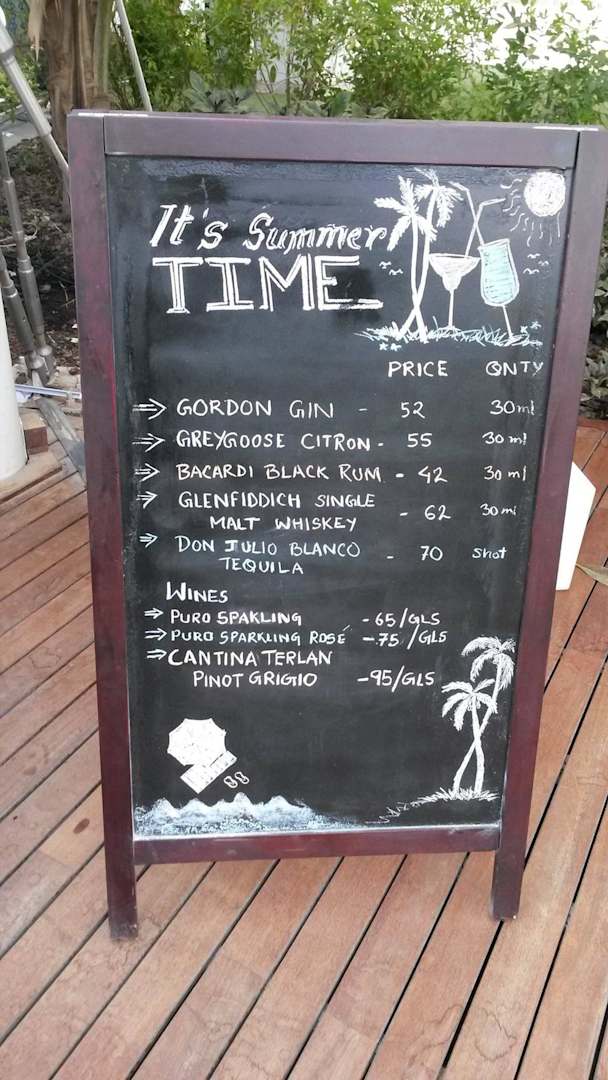 It's Summer
TIME
PRICE QNTY
GORDON GIN - 52 30ml
GREYGOOSE CITRON - 55 30ml
BACARDI BLACK RUM - 42 30ml
GLENFIDDICH SINGLE
MALT WHISKEY - 62 30ml
DON JULIO BLANCO
TEQUILA - 70 Shot
WINES
PURO SPAKLING -65/GLS
PURO SPARKLING ROSÉ -75/GLS
CANTINA TERLAN
PINOT GRIGIO -95/GLS